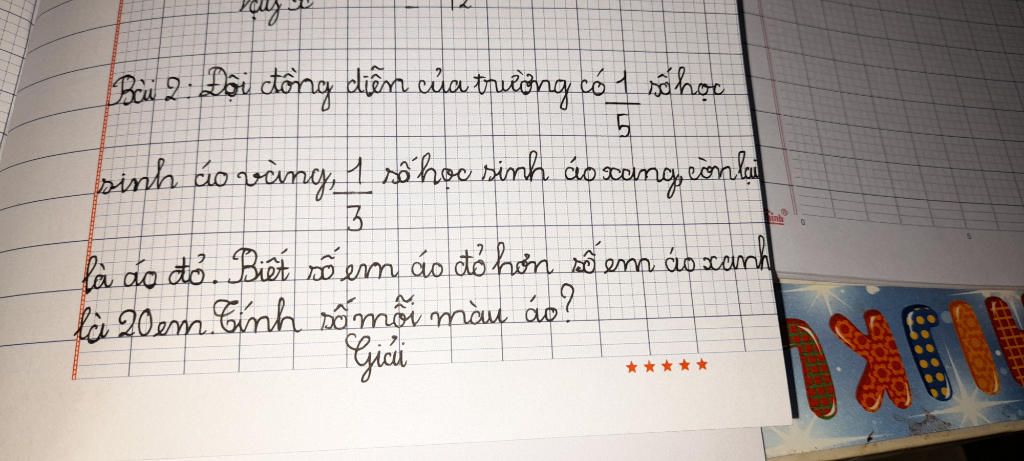 Bài 2: Đội đồng diễn của trường có 1/5 số học
sinh áo vàng, 1/3 số học sinh áo xang, còn lại
là áo đỏ. Biết số em áo đỏ hơn số em áo xanh
là 20 em. Tính số mỗi màu áo?
Giải